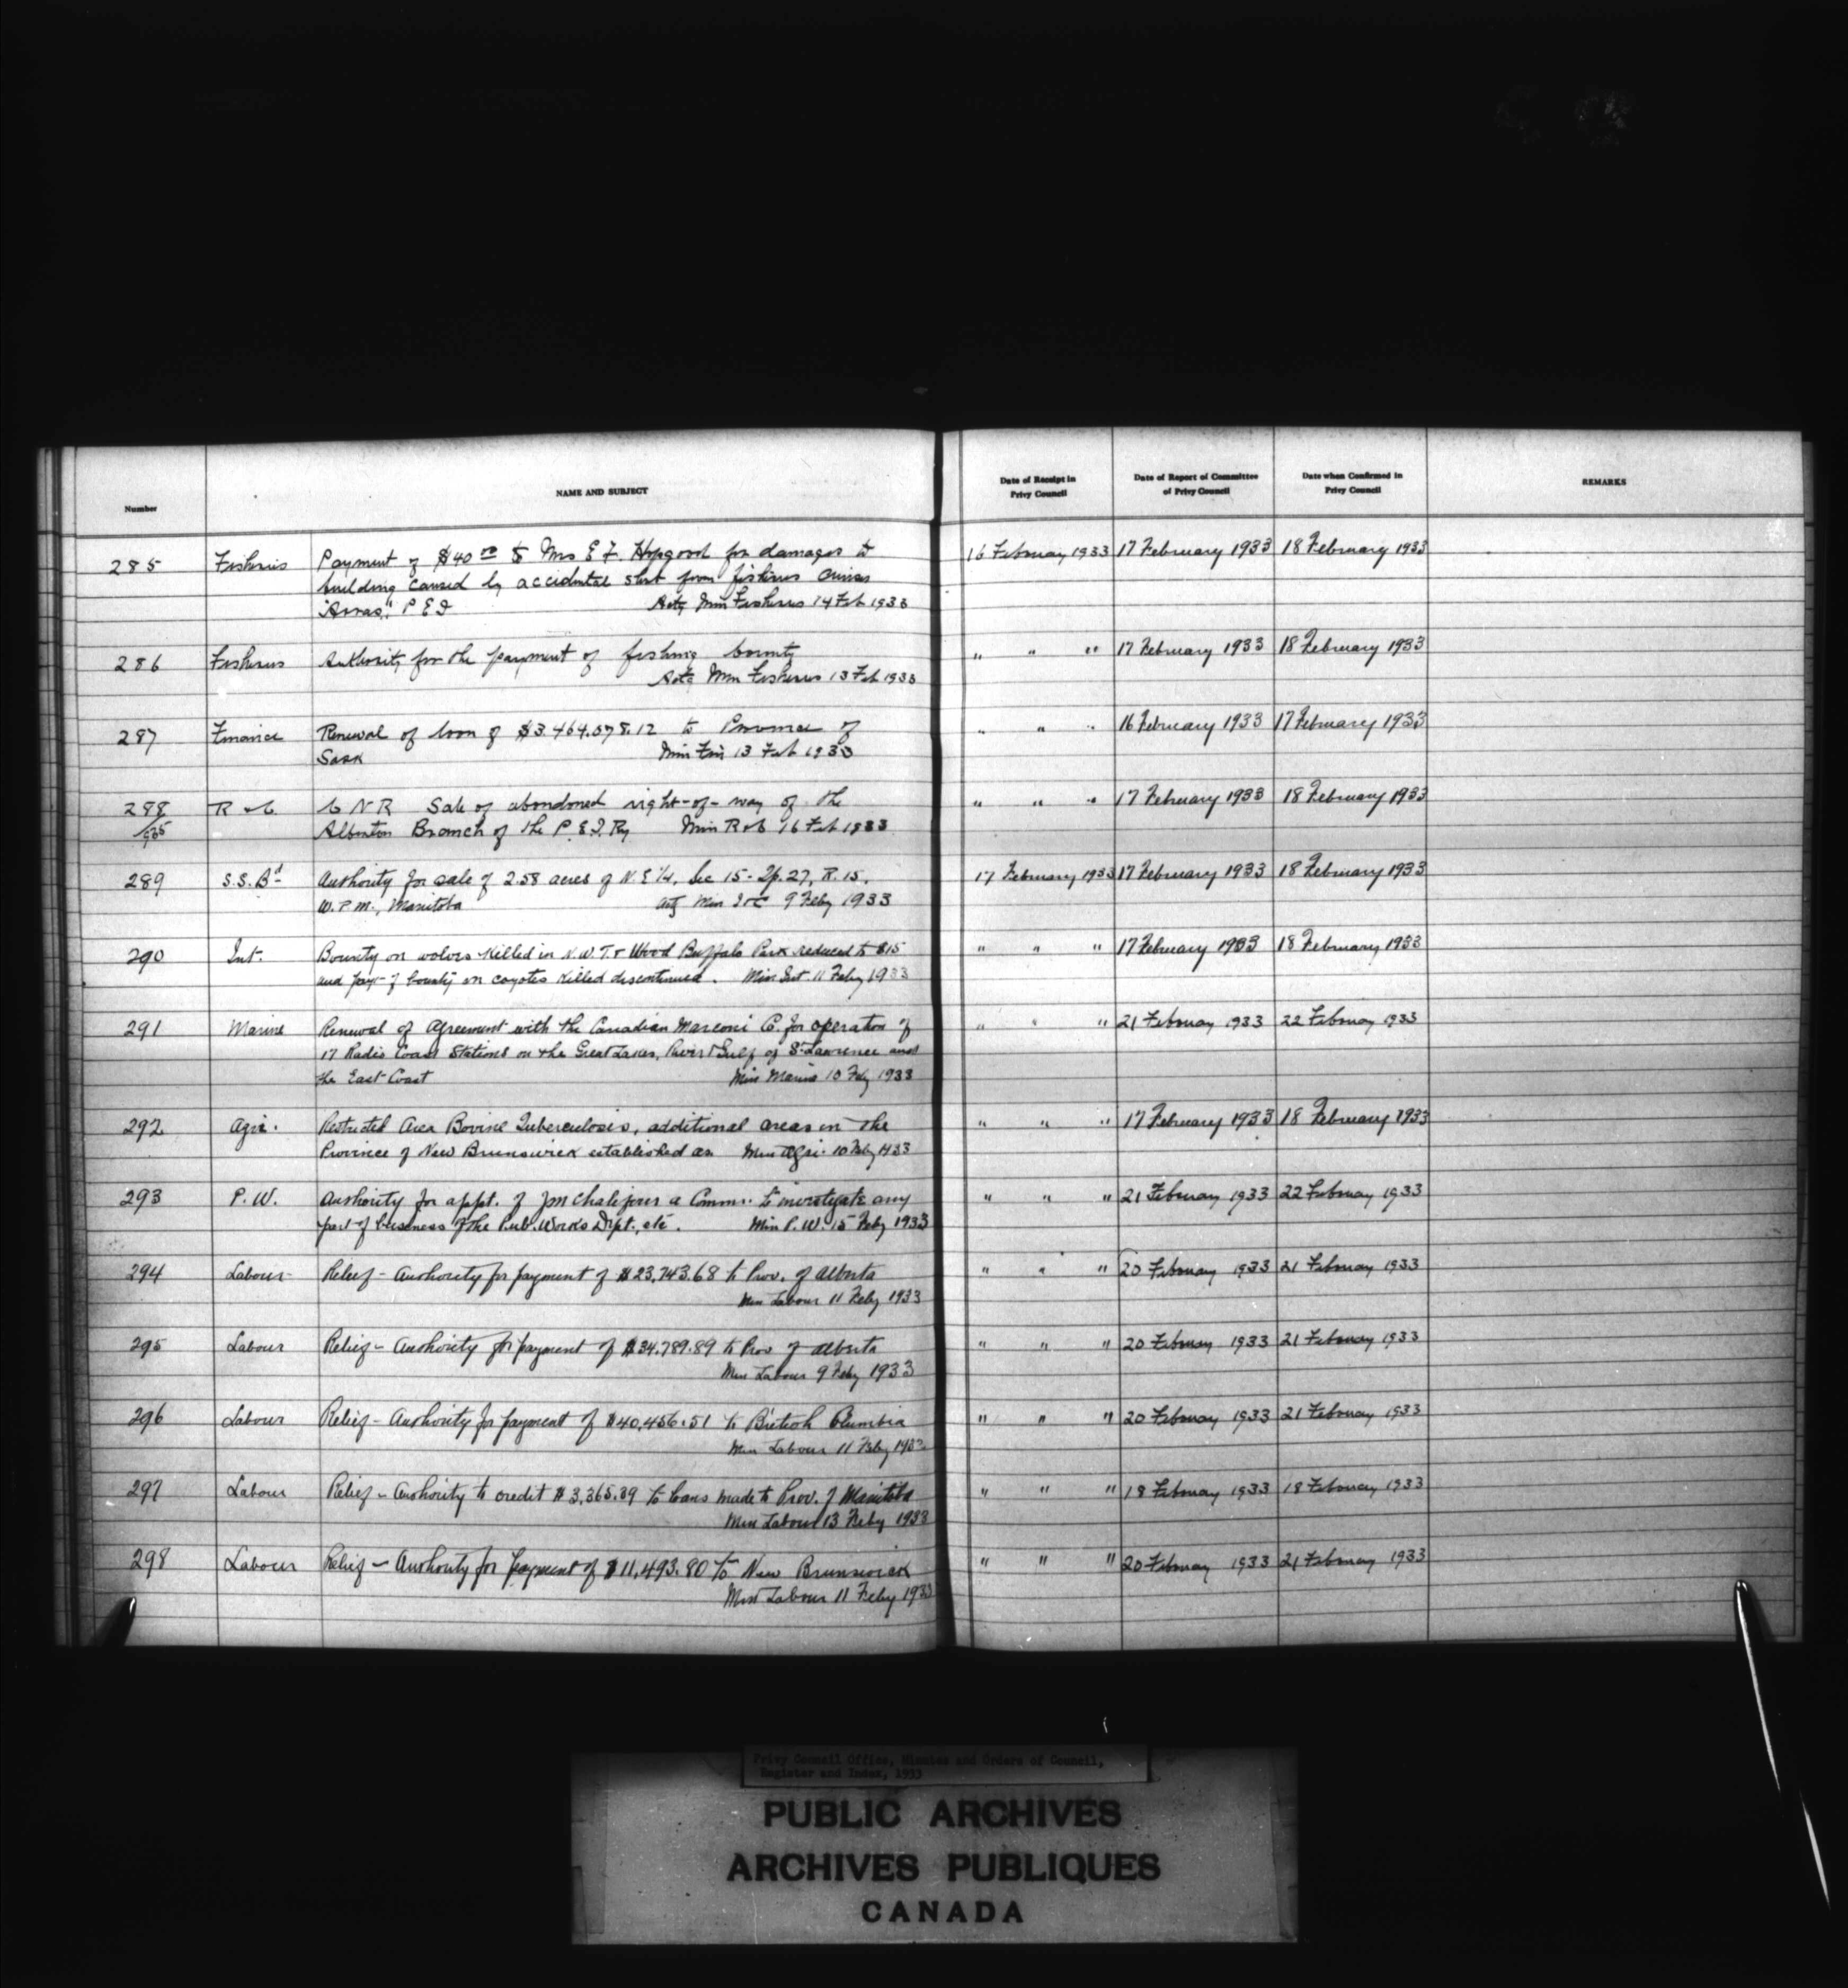 Number
NAME AND SUBJECT
Date of Receipt in
Privy Council
Date of Report of Committee
of Privy Council
Date when Confirmed in
Privy Council
REMARKS
285 Fisheries Payment of $40 00 to Mrs E F. Hopgood for damages to 16 February 1933 17 February 1933 18 February 1933
building caused by accidental shot from fisheries cruiser
"Arras", P E I Actg Min Fisheries 14 Feb 1933
286 Fisheries Authority for the payment of fishing bounty " " " 17 February 1933 18 February 1933
Actg Min Fisheries 13 Feb 1933
287 Finance Renewal of loan of $3.464.578.12 to Province of " " " 16 February 1933 17 February 1933
Sask Min Fin 13 Feb 1933
288 R & C C N R Sale of abandoned right-of-way of the " " " 17 February 1933 18 February 1933
/935 Alberton Branch of the P.E.I. Ry Min R & C 16 Feb 1933
289 S.S. Bd Authority for sale of 2.58 acres of N.E ¼, Sec 15 - Tp. 27, R. 15, 17 February 1933 17 February 1933 18 February 1933
W.P.M., Manitoba Actg Min 9 Feby 1933
290 Int. Bounty on wolves killed in N.W.T. & Wood Buffalo Park reduced to $15 " " " 17 February 1933 18 February 1933
and payt of bounty on coyotes killed discontinued. Min Int 11 Feby 1933
291 Marine Renewal of Agreement with the Canadian Marconi Co. for operation of " " " 21 February 1933 22 February 1933
17 Radio Coast Stations on the Great Lakes, River & Gulf of St Lawrence and
the East Coast Min Marine 10 Feby 1933
292 Agri. Restricted Area Bovine Tuberculosis, additional areas in the " " " 17 February 1933 18 February 1933
Province of New Brunswick established as Min Agri. 10 Feby 1933
293 P.W. Authority for appt. of J M Chalifour a Commr. to investigate any " " " 21 February 1933 22 February 1933
part of business of the Pub. Works Dept., etc. Min P.W. 15 Feby 1933
294 Labour Relief - Authority for payment of $23,743.68 to Prov. of Alberta " " " 20 February 1933 21 February 1933
Min Labour 11 Feby 1933
295 Labour Relief - Authority for payment of $34,789.89 to Prov of Alberta " " " 20 February 1933 21 February 1933
Min Labour 9 Feby 1933
296 Labour Relief - Authority for payment of $40,456.51 to British Columbia " " " 20 February 1933 21 February 1933
Min Labour 11 Feby 1933
297 Labour Relief - Authority to credit $3,365.39 to loans made to Prov. of Manitoba " " " 18 February 1933 18 February 1933
Min Labour 13 Feby 1933
298 Labour Relief - Authority for payment of $11,493.80 to New Brunswick " " " 20 February 1933 21 February 1933
Min Labour 11 Feby 1933
Privy Council Office, Minutes and Orders of Council,
Register and Index, 1933
PUBLIC ARCHIVES
ARCHIVES PUBLIQUES
CANADA